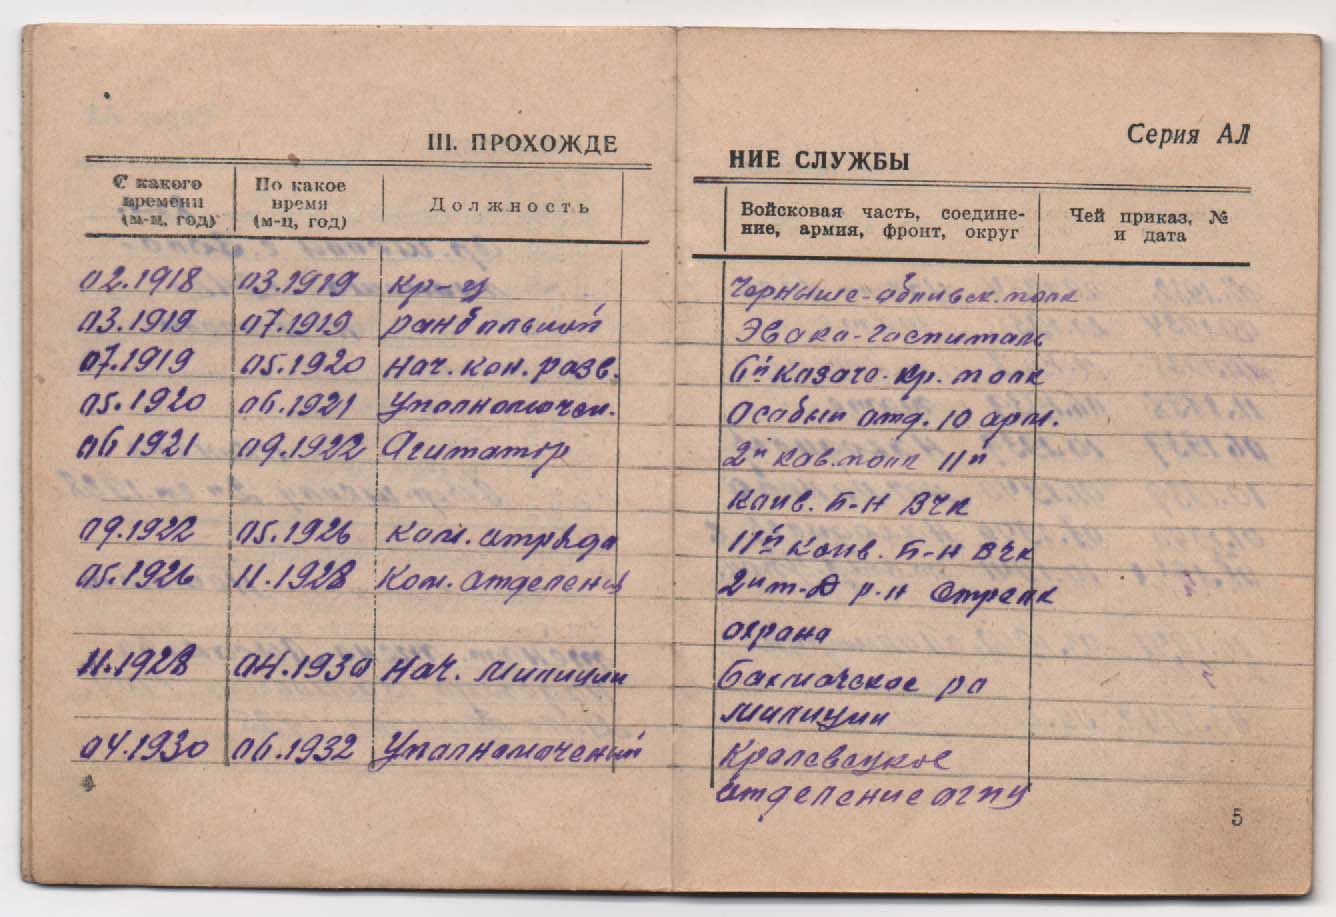 III. ПРОХОЖДЕ
С какого времени (м-ц, год)
По какое время (м-ц, год)
Должность
02.1918 03.1919 кр-ец
03.1919 07.1919 ранбольной
07.1919 05.1920 нач. кон. разв.
05.1920 06.1921 Уполномочен.
06 1921 09.1922 Агитатор
09.1922 05.1926 Ком. отряда
05.1926 11.1928 Ком. отделения
11.1928 04.1930 Нач. милиции
04.1930 06.1932 Уполномоченный
4
Серия АЛ
НИЕ СЛУЖБЫ
Войсковая часть, соедине-
ние, армия, фронт, округ
Чей приказ, №
и дата
полк
Эвако-госпиталь
6й Казаче. кр. полк
Особый отд. 10 арм.
2й кав. полк 11й
конв. Б-н ВЧК
11й конв. Б-н ВЧК
р-н Стрелк
охрана
Бахмачское ра
милиции
Кролевецкое
отделение ОГПУ
5